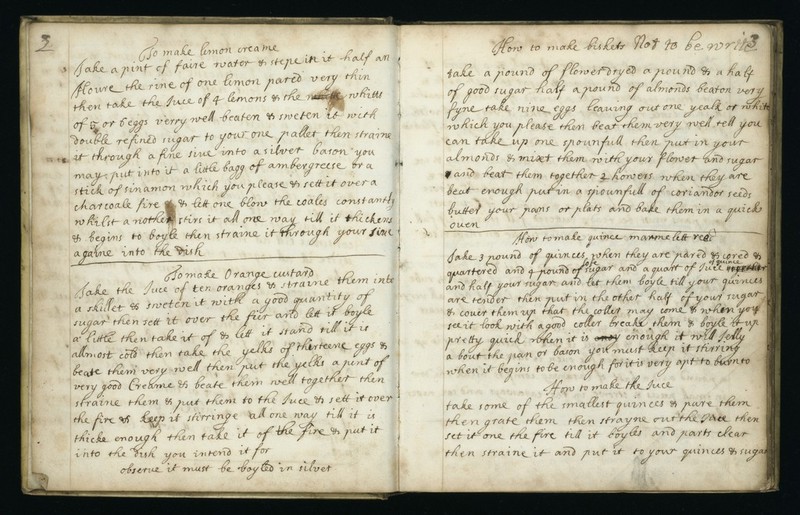 2
To make limon creame
Take a pint of faire water & stepe in it half an
Houre the rine of one limon pared very thin
then take the Juce of 4 lemons & the whitts
of 5 or 6 eggs verry well beaten & sweten it with
double refined sugar to your one pallet then straine
it through a fine sive into a silver bason you
may put into it a little bagg of ambergreese or a
stick of sinamon which you please & sett it over a
charcoale fire & lett one blow the coales constantly
whilst a nother stirs it all one way till it thickens
& begins to boyle then straine it through your sive
againe into the dish
To make Orange custard
Take the Juce of ten oranges & straine them into
a skillet & sweten it with a good quantity of
sugar then sett it over the fier and lett it boyle
a little then take it of & lett it stand till it is
allmost cold then take the yelks of thirteene eggs &
beate them very well then put the yelks a pint of
very good Creame & beate them well together then
straine them & put them to the Juce & sett it over
the fire & keep it stirringe all one way till it is
thicke enough then take it of the fire & put it
into the dish you intend it for
observe it must be boyled in silver
3
How to make biskets Not to be writ
take a pound of flower dryed a pound & a half
of good sugar half a pound of almonds beaton very
fyne take nine eggs leaving out one yealk or white
which you please then beat them very well tell you
can take up one spounfull then put in your
almonds & mixt them with your flower and sugar
and beat them together 2 howers when they are
beat enough put in a spounfull of coriandor seeds
butter your pans or plats and bake them in a quick
oven
How to make quince marmelett red
Take 3 pound of quinces when they are pared & cored &
quartered and 4 pound of lofe sugar and a quart of Juce of quince
and half your sugar and let them boyle till your quinces
are tender then put in the other half of your sugar
& couer them up that the coller may come & when you
see it look with a good coller breake them & boyle it up
pretty quick when it is enough it will Jelly
a bout the pan or bason you must keep it stirring
when it begins to be enough for it is very apt to burn to
How to make the Juce
take some of the smallest quinces & pare them
then grate them then strayne out the Juce then
set it one the fire till it boyles and parts clear
then straine it and put it to your quinces & sugar